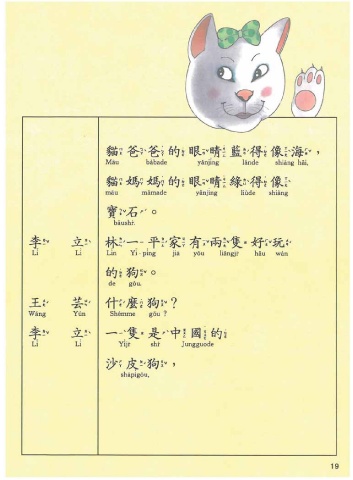 貓爸爸的眼睛藍得像海，
Māu bàbade yǎnjing lánde shiàng hǎi,
貓媽媽的眼睛綠得像
māu māmade yǎnjing liùde shiàng
寶石。
bǎushŕ.
李立 林一平家有兩隻好玩
Lǐ Lì Lín Yī-píng jiā yǒu liǎngjr̄ hǎu wán
的狗。
de gǒu.
王芸 什麼狗？
Wáng Yún Shémme gǒu ?
李立 一隻是中國的
Lǐ Lì Yìjr̄ shr̀ Jūngguode
沙皮狗，
shāpígǒu,
19